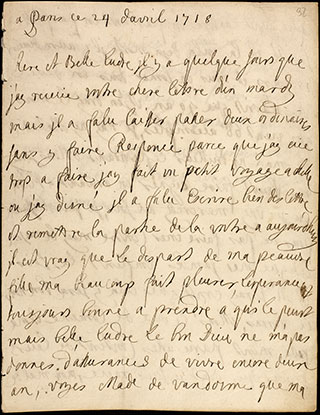 a Paris ce 24 davril 1718
chere et Belle Ludre, il y a quelque Jours que
jay receue vostre chere lettre dun mardy
mais il a falu laisser passer deux ordinaires
sans y faire Responce parce que jay eue
trop a faire jay fait un petit voyage a
ou jay diné il a falu Escrire bien des lettres
et remettre la partie de la vostre a aujourdhuy
il est vray que le despart de ma peauvre
fille ma beaucoup fait pleurer, lesperance est
tousjours bonne a prendre a qui le peust
mais belle Ludre le bon Dieu ne ma pas
donnes dassurances de vivre encore deux
an, voyes Made de vandosme que ma